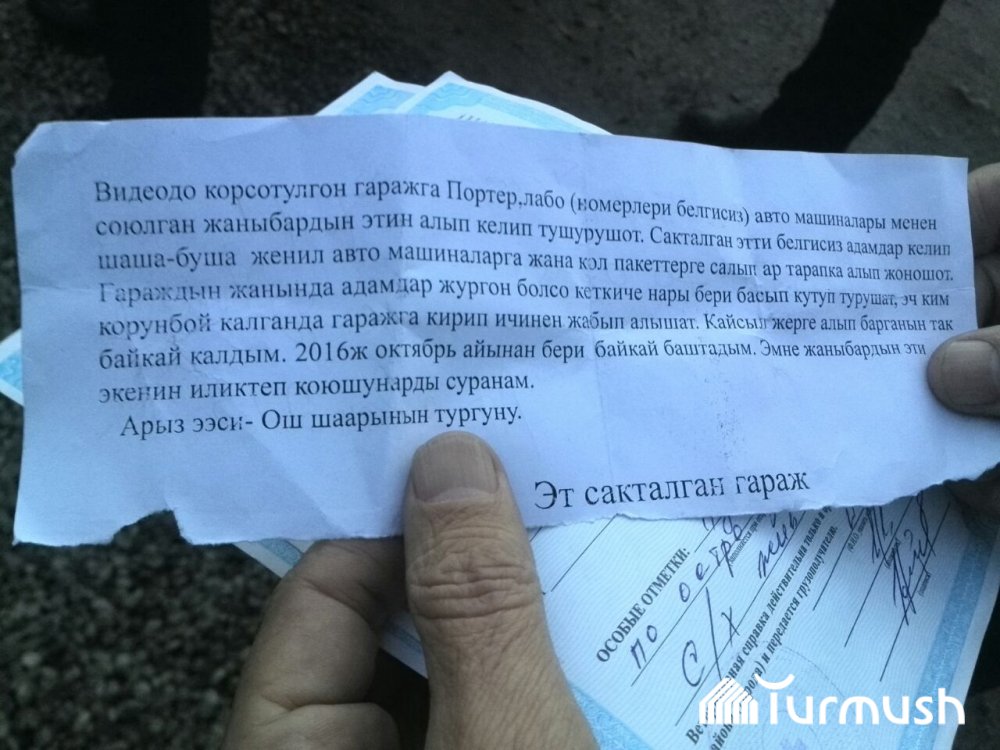 Видеодо корсотулгон гаражга Портер,лабо (номерлери белгисиз) авто машиналары менен
союлган жаныбардын этин алып келип тушурушот. Сакталган этти белгисиз адамдар келип
шаша-буша женил авто машиналарга жана кол пакеттерге салып ар тарапка алып жоношот.
Гараждын жанында адамдар жургон болсо кеткиче нары бери басып кутуп турушат, эч ким
корунбой калганда гаражга кирип ичинен жабып алышат. Кайсыл жерге алып барганын так
байкай калдым. 2016ж октябрь айынан бери байкай баштадым. Эмне жаныбардын эти
экенин иликтеп коюшунарды суранам.
Арыз ээси- Ош шаарынын тургуну.
Эт сакталган гараж
ОСОБЫЕ ОТМЕТКИ:
по
с/х
справка действительна только в
и передается грузополучателю.
Turmush